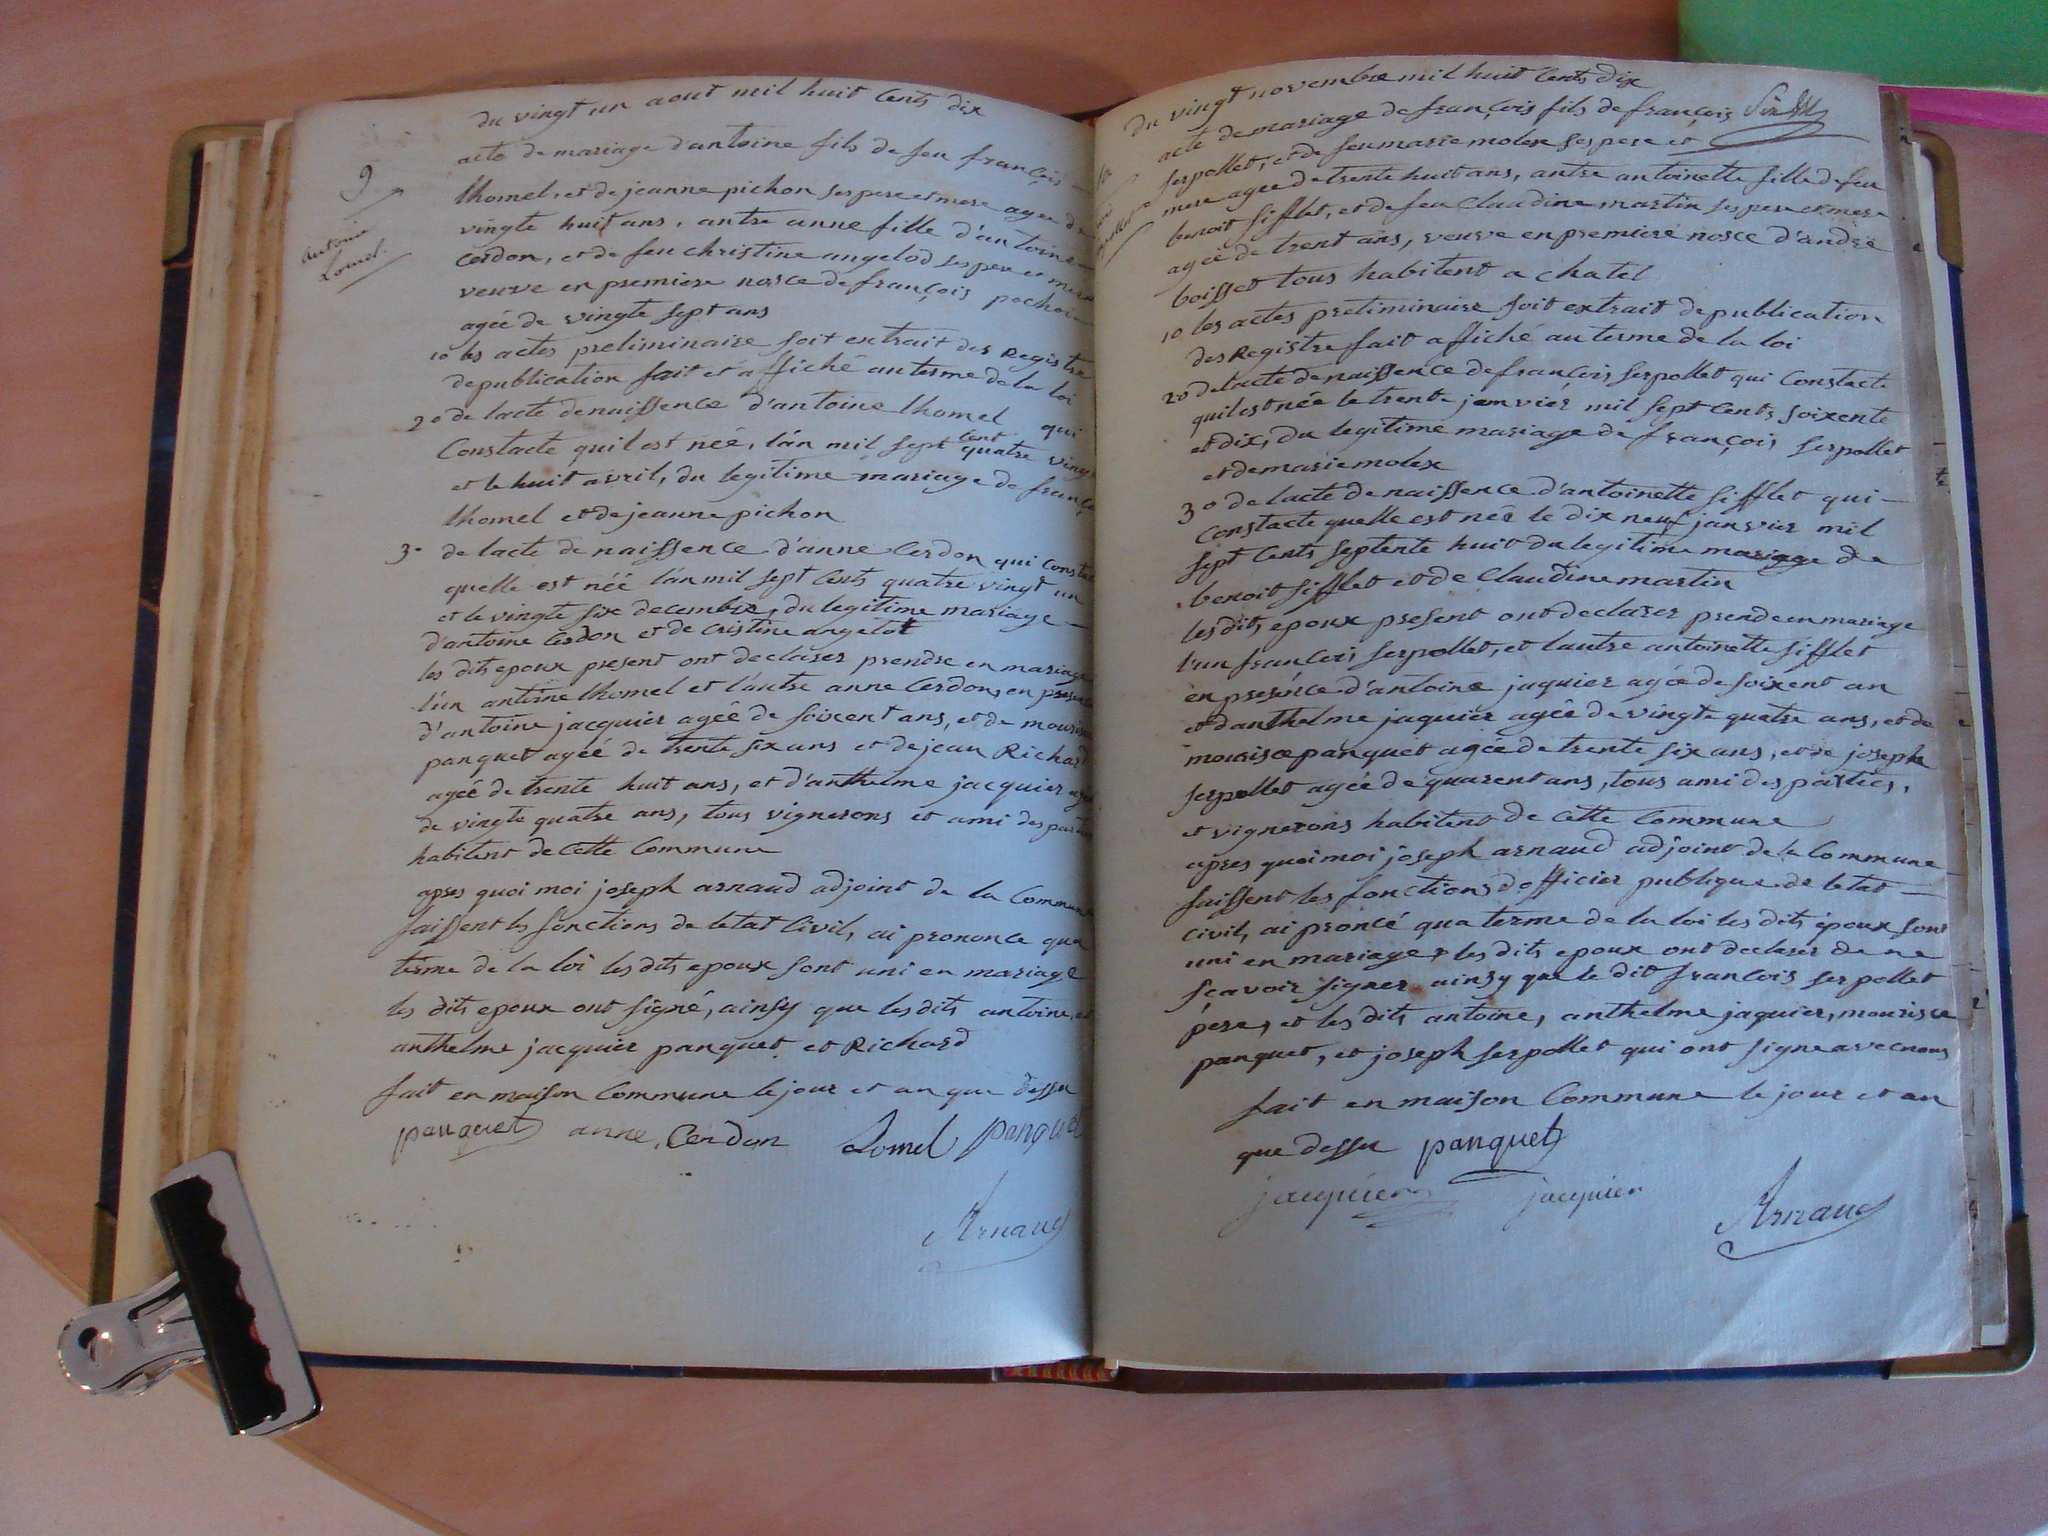 du vingt un aout mil huit Cents dix
9
Antoine
Lomel.
acte de mariage d'antoine fils de feu françois
lhomel, et de jeanne pichon ses pere et mere agee de
vingte huit ans, antre anne fille d'antoine
Cerdon, et de feu christine angelod ses pere et mere
veuve en premiere nosce de françois pochon
agéé de vingte sept ans
1o les actes preliminaire soit extrait des Registre
de publication fait et affiché au terme de la loi
2o de lacte de naissence d'antoine lhomel qui
Constacte quil est néé, l'an mil sept Cent quatre vingt
et le huit avril, du legitime mariage de franç
lhomel et de jeanne pichon
3o de lacte de naissence d'anne Cerdon qui Constac
quelle est néé l'an mil sept Cents quatre vingt un
et le vingte six decembre, du legitime mariage
d'antoine Cerdon et de Cristine angelot
les dits epoux present ont declarer prendre en mariage
l'un antoine lhomel et l'autre anne Cerdon, en presence
d'antoine jacquier agéé de soixent ans, et de mourisce
panquet agéé de trente six ans et de jean Richard
agéé de trente huit ans, et d'anthelme jacquier agéé
de vingte quatre ans, tous vignerons et ami des parties
habitent de Cette Commune
apres quoi moi joseph arnaud adjoint de la Commune
faissent les fonctions de letat Civil, ai prononce qua
terme de la loi les dits epoux sont uni en mariage
les dits epoux ont signé, ainsy que les dits antoine, et
anthelme jacquier panquet et Richard
fait en maison Commune le jour et an que dessu
panquet anne, Cerdon Lomel panquet
Arnaud
du vingt novembre mil huit Cents dix
acte de mariage de françois fils de françois
serpollet, et de feu marie molex ses pere et
mere agee de trente huit ans, antre antoinette fille de feu
benoit sifflet, et de feu Claudine martin ses pere et mere
agéé de trent ans, veuve en premiere nosce d'andré
boisset tous habitent a chatel
1o les actes preliminaire soit extrait de publication
des Registre fait affiché au terme de la loi
2o de lacte de naissence de françois serpollet qui Constacte
quil est néé le trente janviér mil sept Cents soixente
et dix, du legitime mariage de françois serpollet
et de marie molex
3o de lacte de naissence d'antoinette sifflet qui
Constacte quelle est néé le dix neuf janvier mil
sept Cents septente huit du legitime mariage de
benoit sifflet et de Claudine martin
les dits epoux present ont declarer prende en mariage
l'un françois serpollet, et lautre antoinette sifflet
en presénce d'antoine jaquier agéé de soixent an
et d'anthelme jaquier agéé de vingte quatre ans, et de
mourisce panquet agéé de trente six ans, et de joseph
serpollet agéé de quarent ans, tous ami des parties,
et vignerons habitent de Cette Commune
apres quoi moi joseph arnaud adjoint de la Commune
faissent les fonctions d'officier publique de letat
Civil, ai proncé qua terme de la loi les dits époux sont
uni en mariage, les dits epoux ont declarer de ne
scavoir signer ainsy que le dit françois serpollet
pere, et les dits antoine, anthelme jaquier, mourisce
panquet, et joseph serpollet qui ont signe avec nous
fait en maison Commune le jour et an
que dessu panquet
jacquier jacquier
Arnaud